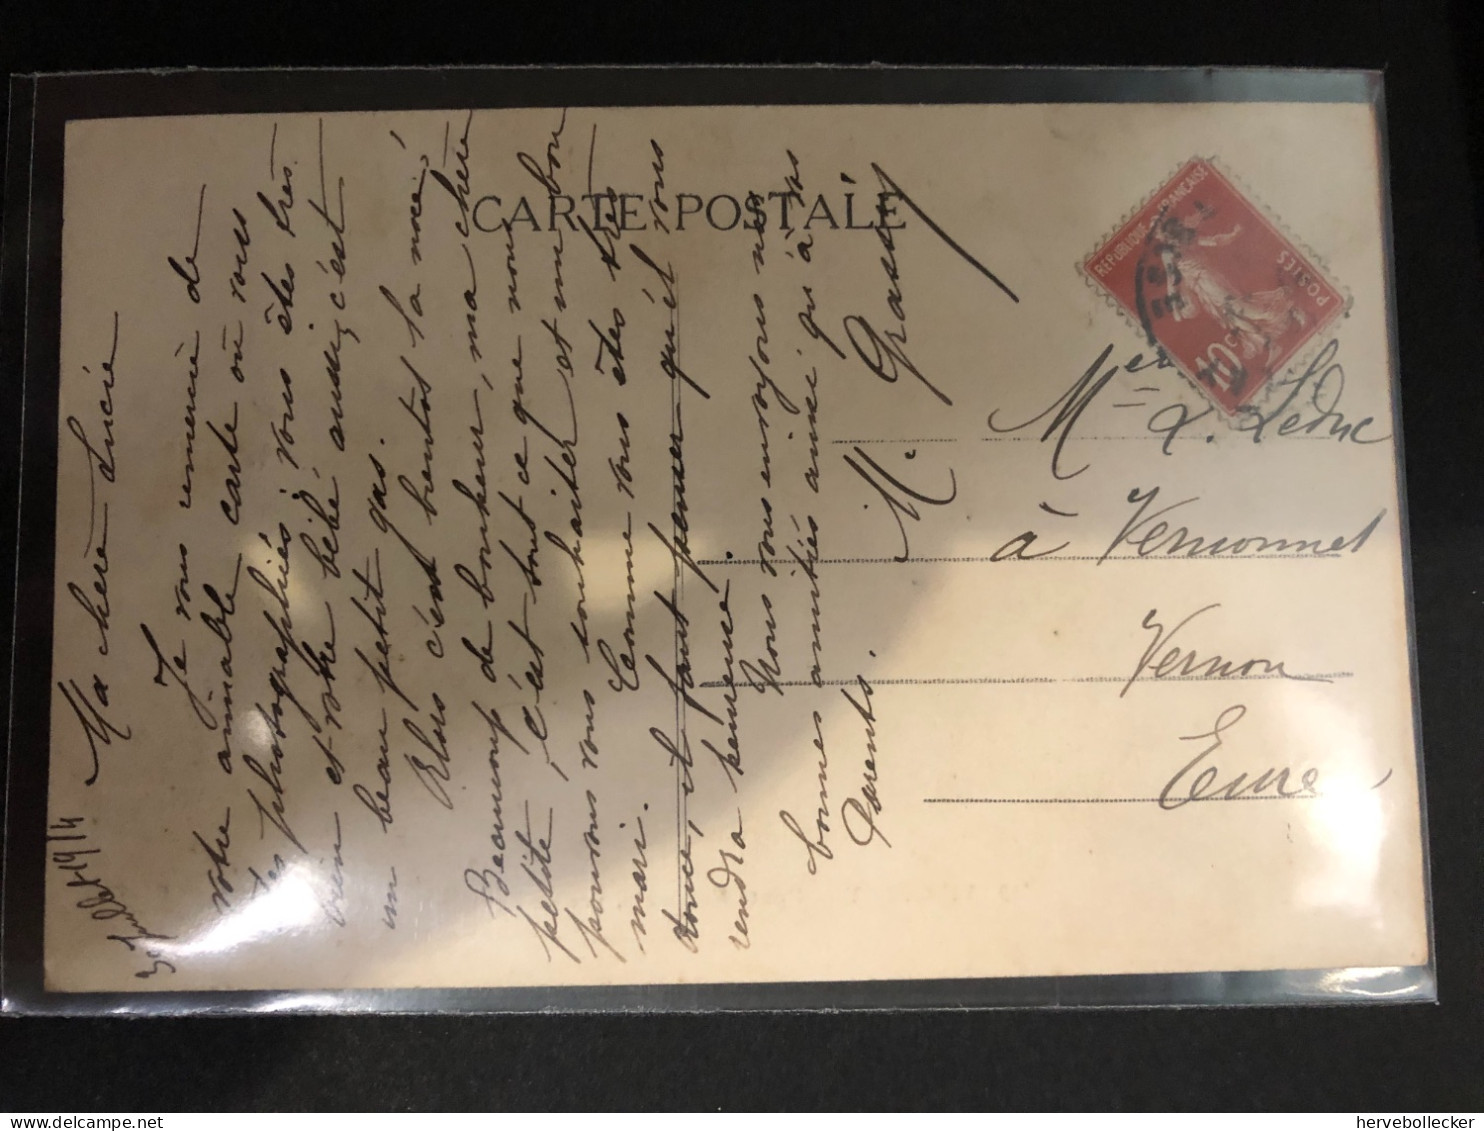 CARTE POSTALE
30 Juillet 1914
Ma chère Lucie
Je vous remercie de
votre aimable carte où vous
êtes photographiés, vous êtes très
bien et votre bébé aussi, c'est
un beau petit gas.
Alors c'est bientôt la noce,
Beaucoup de bonheur, ma chère
petite, c'est tout ce que nous
pouvons vous souhaiter et un bon
mari. Comme vous êtes très
, il faut penser qu'il vous
rendra heureuse.
Nous vous envoyons nos
bonnes amitiés ainsi qu'à vos
Parents.
M. Grassay
REPUBLIQUE FRANÇAISE
POSTES
10 c
L. Leduc
à Vernonnet
Vernon
Eure
hervebollecker